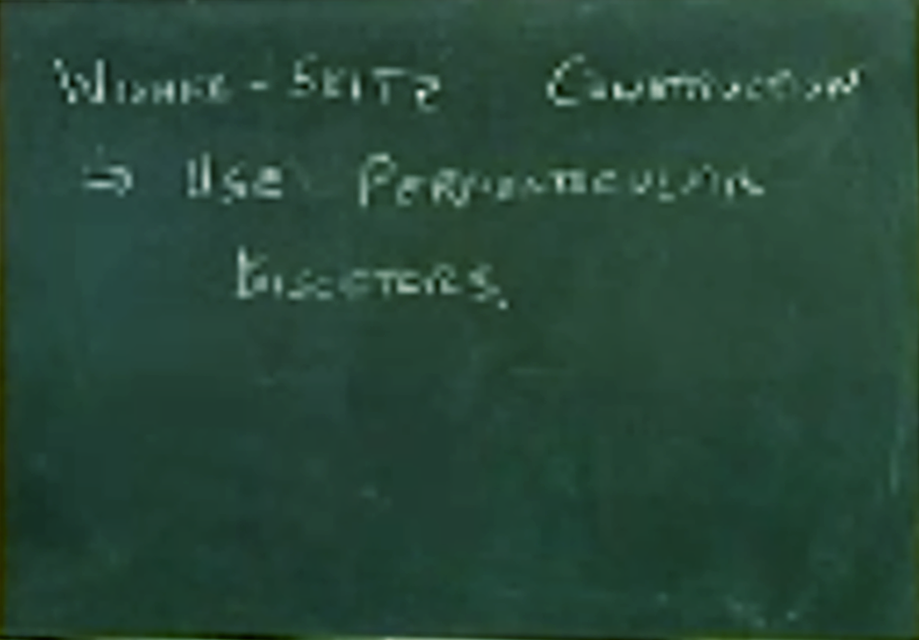 WIGNER-SEITZ CONSTRUCTION
⇒ USE PERPENDICULAR
BISECTORS.